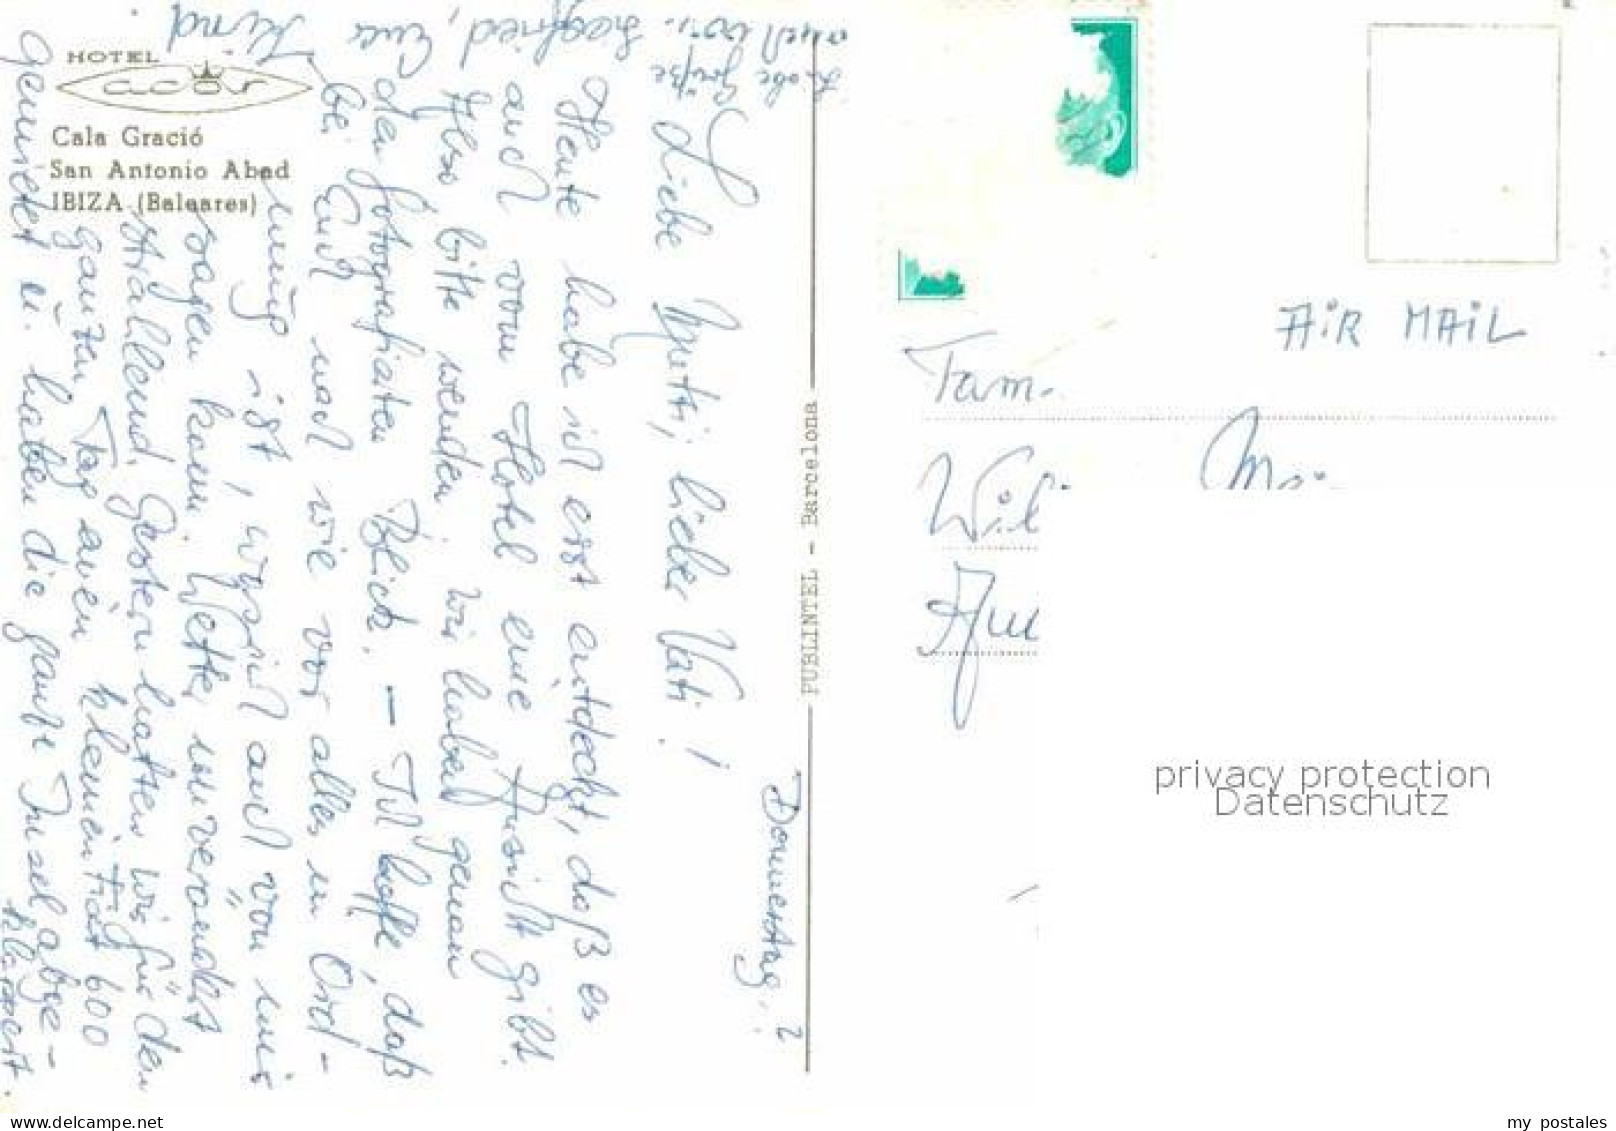 HOTEL
acor
Cala Gració
San Antonio Abad
IBIZA (Baleares)
Donnerstag, 2
Liebe Mutti, lieber Vati!
Heute habe ich erst entdeckt, daß es
auch vom Hotel eine Ansicht gibt.
Also bitte wenden, wir haben genau
den fotografierten Blick. – Ich hoffe, daß
bei Euch nach wie vor alles in Ord-
nung ist, was ich auch von uns
sagen kann. Wetter unverändert
strahlend. Gestern hatten wir für den
ganzen Tag einen kleinen Fiat 600
gemietet u. haben die ganze Insel abge-
klappert.
Liebe Grüße
auch von Siegfried, Eure
Kind
PUBLINTEL - Barcelona
AIR MAIL
Fam.
privacy protection
Datenschutz
my postales